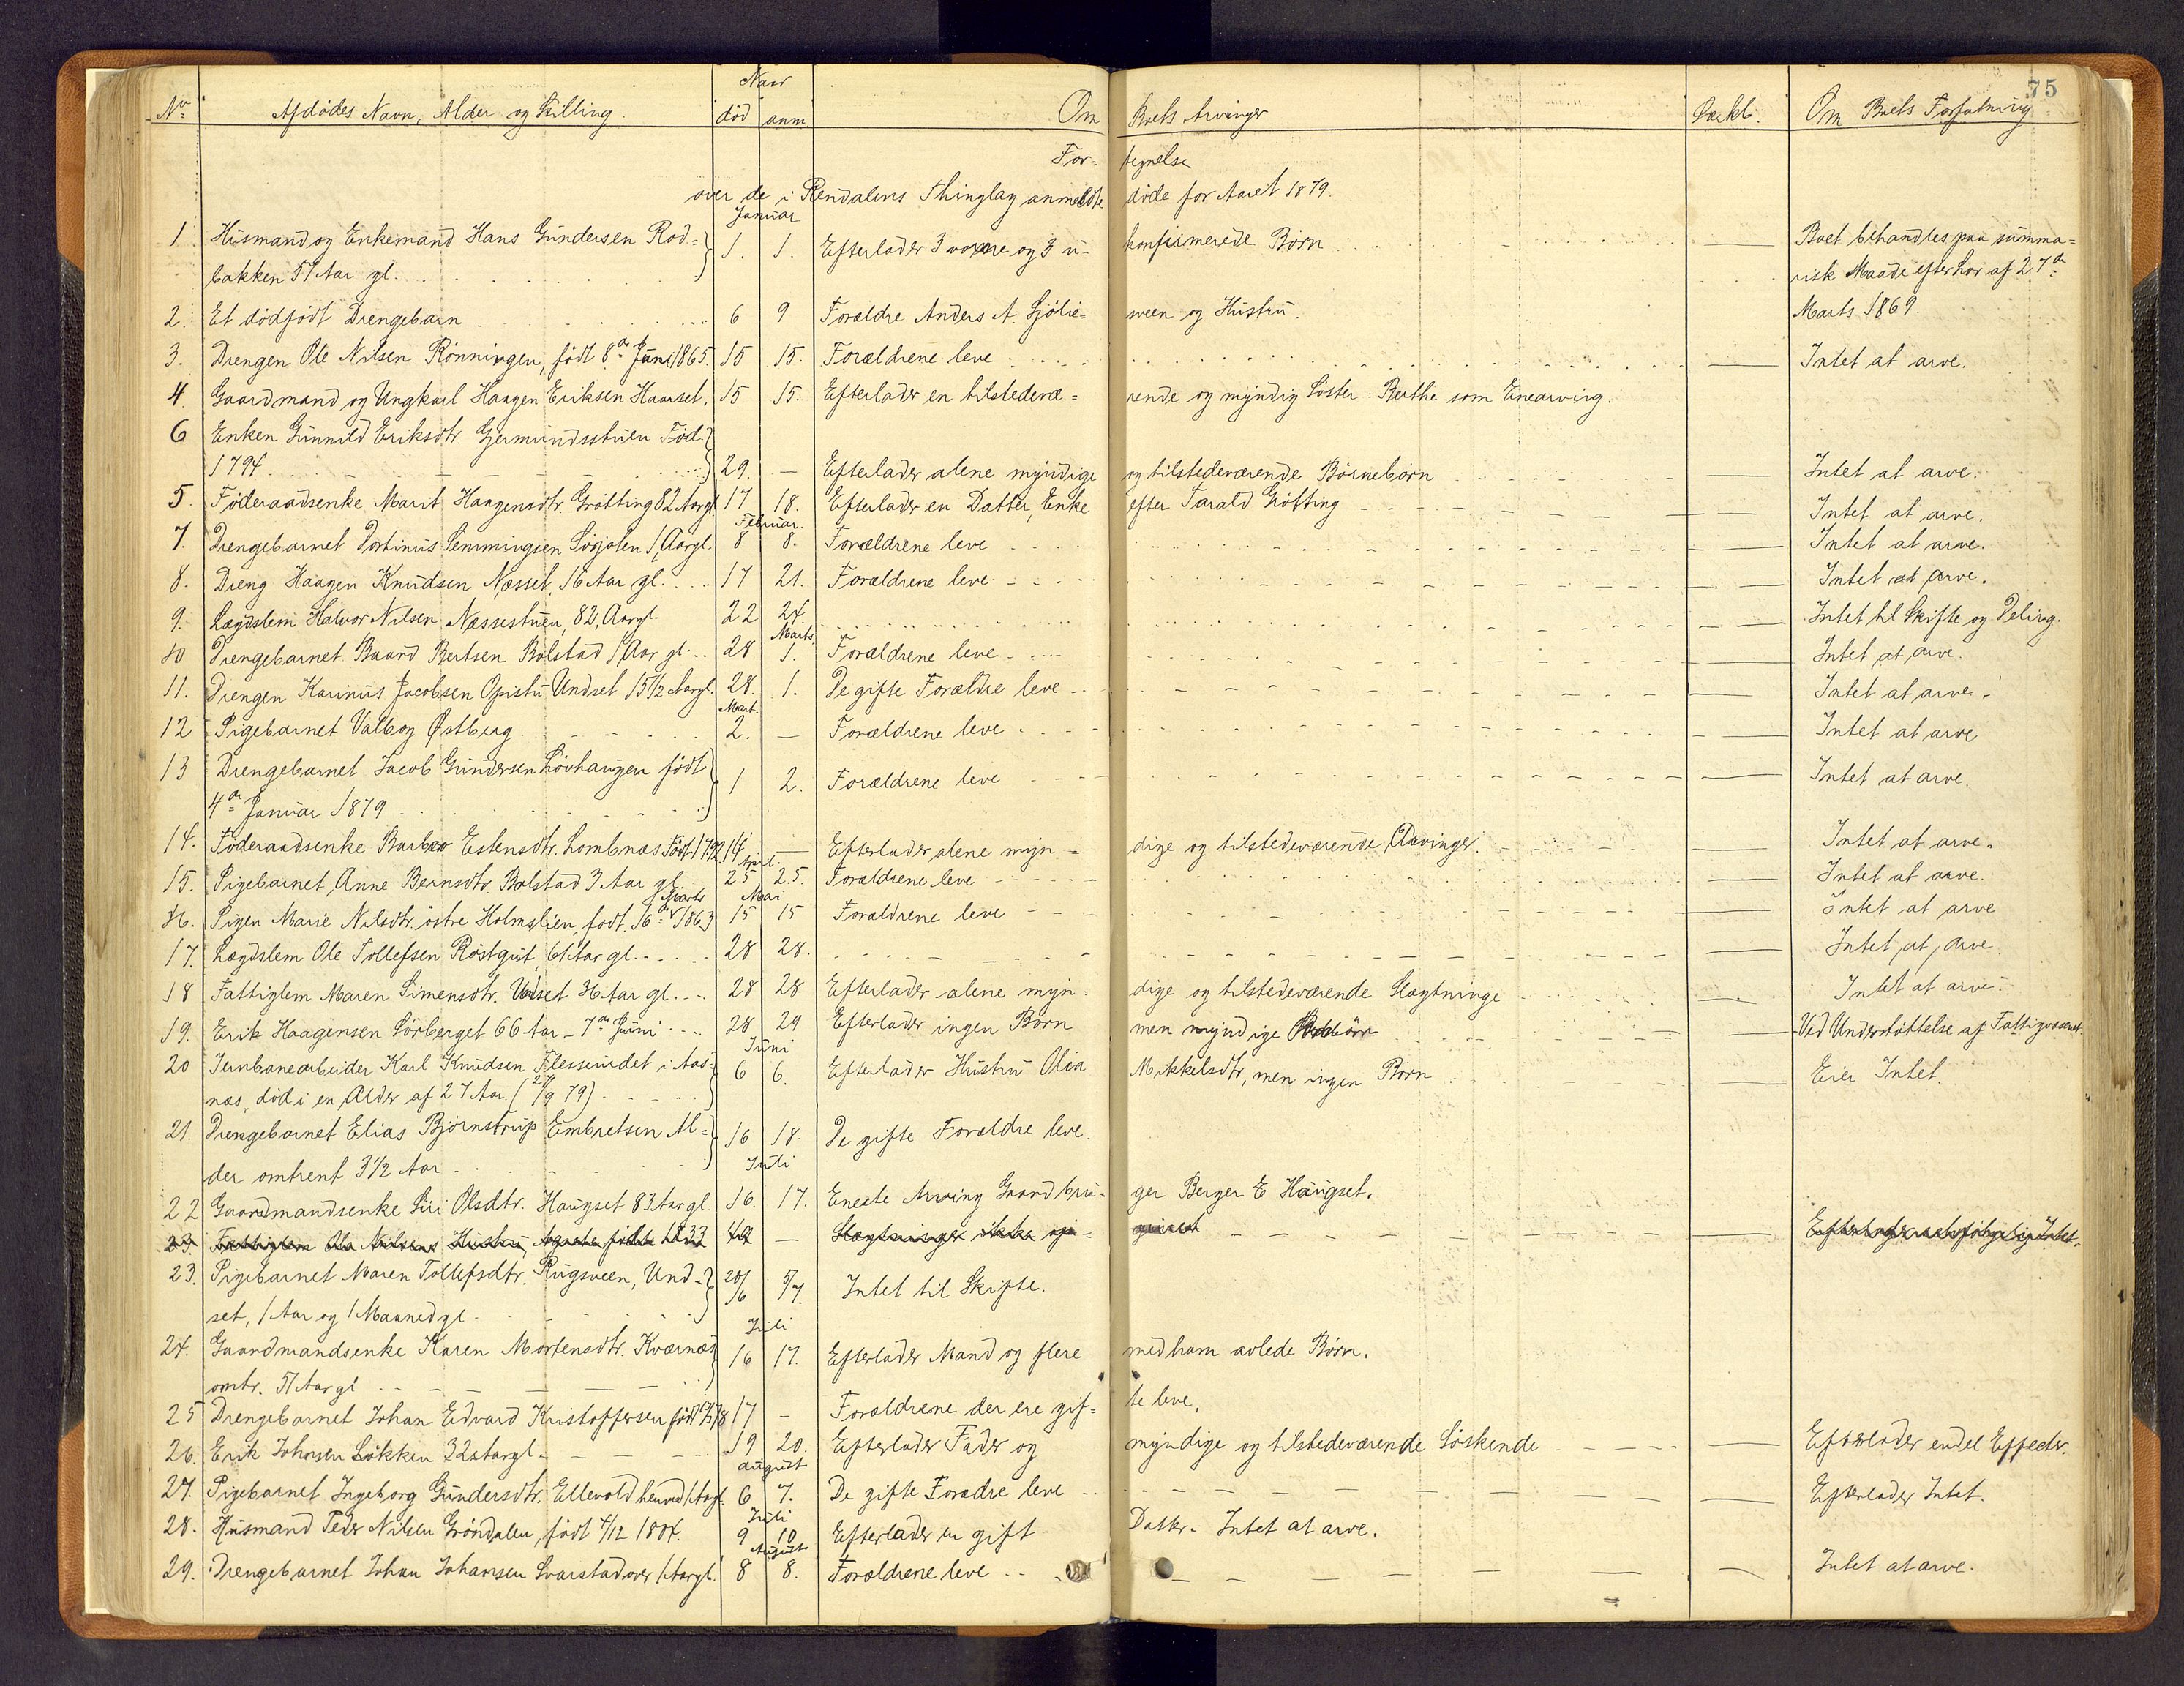 75
No Afdødes Navn, Alder og Stilling. Naar død anm Om Boets Arvinger Om Boets Forfatning
For= tegnelse
over de i Rendalens Thinglag anmeldte døde for Aaret 1879.
Januar
1 Husmand og Enkemand Hans Gundersen Rod= 1. 1. Efterlader 3 voxne og 3 u- konfirmerede Børn Boet behandles paa summa=
bakken 57 Aar gl. risk Maade efter Lov af 27de
2. Et dødfødt Drengebarn 6 9 Forældre Anders A. Sjølie= sveen og Hustru. Marts 1869.
3. Drengen Ole Nilsen Rønningen, født 8de Juni 1865. 15 15. Forældrene leve Intet at arve.
4. Gaardmand og Ungkarl Haagen Eriksen Haarset. 15 15. Efterlader en tilstedevæ= rende og myndig Søster: Berthe som Enearving.
6 Enken Gunnild Eriksdtr. Germundsstuen Fød.
1794. 29. — Efterlader alene myndige og tilstedeværende Børnebørn Intet at arve.
5. Føderaadsenke Marit Haagensdtr. Grøtting 82 Aar gl 17 18. Efterlader en Datter, Enke efter Tarald Grøtting Intet at arve.
Februar.
7. Drengebarnet Portinus Simmingsen 1 Aar gl. 8 8. Forældrene leve Intet at arve.
8. Dreng Haagen Knudsen Næsset, 16 Aar gl. 17 21. Forældrene leve Intet at arve.
9. Lægdslem Halvor Nilsen Næssestuen, 82, Aar gl. 22 24. Intet til Skifte og Deling.
Marts
10 Drengebarnet Baard Bertsen Bolstad 1 Aar gl. 28 1. Forældrene leve Intet at arve.
11. Drengen Karinus Jacobsen Opistu Undset 15 1/2 Aar gl. 28. 1. De gifte Forældre leve Intet at arve.
Mart.
12 Pigebarnet Valborg Østberg 2. — Forældrene leve Intet at arve
13 Drengebarnet Jacob Gundersen Løvhaugen født 1 2. Forældrene leve Intet at arve.
4de Januar 1879
14. Føderaadsenke Barbro Estensdtr. Lombnæs Født 1792 14 — Efterlader alene myn= dige og tilstedeværende Arvinger. Intet at arve.
April.
15. Pigebarnet Anne Berntsdtr. Bolstad 3 Aar gl 25 25. Forældrene leve Intet at arve.
Marts Mai
16. Pigen Marie Nilsdtr. østre Holmslien, født. 16de 1863 15 15 Forældrene leve Intet at arve
17. Lægdslem Ole Tollefsen Røstgut, 61 Aar gl. 28 28. Intet at arve.
18 Fattiglem Maren Simensdtr. Undset 36 Aar gl. 28 28 Efterlader alene myn= dige og tilstedeværende Slægtninge Intet at arve.
19. Erik Haagensen Sørberget 66 Aar - 7de Juni 28 29 Efterlader ingen Børn men myndige Ved Understøttelse af Fattigvæsenet.
Juni
20 Jernbanearbeider Karl Knudsen i Aas= 6 6. Efterlader Hustru Olea Mikkelsdtr, men ingen Børn Eier Intet.
næs, død i en Alder af 27 Aar. (27/9 79)
21. Drengebarnet Elias Bjørnstrup Embretsen Al= 16 18. De gifte Forældre leve.
der omtrent 3 1/2 Aar
Juli
22 Gaardmandsenke Siri Olsdtr. Haugset 83 Aar gl. 16. 17. Eneste Arving Gaardbru= ger Berger E Haugset.
23. Fattiglem Ole Nilsens Hustru, Agnethe fødte 1833 — Slægtninger ikke op= givet Efterlader Intet.
23. Pigebarnet Maren Tollefsdtr. Rugsveen, Und= 20/6 5/7. Intet til Skifte.
set, 1 Aar og 1 Maaned gl.
Juli
24. Gaardmandsenke Karen Mortensdtr. Kværnæs 16 17. Efterlader Mand og flere med ham avlede Børn.
omtr. 57 Aar gl
25 Drengebarnet Johan Edvard Kristoffersen født 17 - Forældrene der ere gif= te leve.
26. Erik Johnsen Løkken 32 Aar gl. 19 20. Efterlader Fader og myndige og tilstedeværende Søskende Efterlader endel Effecter.
August
27. Pigebarnet Ingeborg Gundersdtr. Ellevold henved 1 Aar gl. 6 7. De gifte Forædre leve Efterlader Intet.
Juli
28. Husmand Peder Nilsen Grøndalen, født 4/12 1804. 9 10 Efterlader en gift Datter. Intet at arve.
August
29. Drengebarnet Johan Johansen Svarstad over 1 Aar gl. 8 8. Forældrene leve Intet at arve.